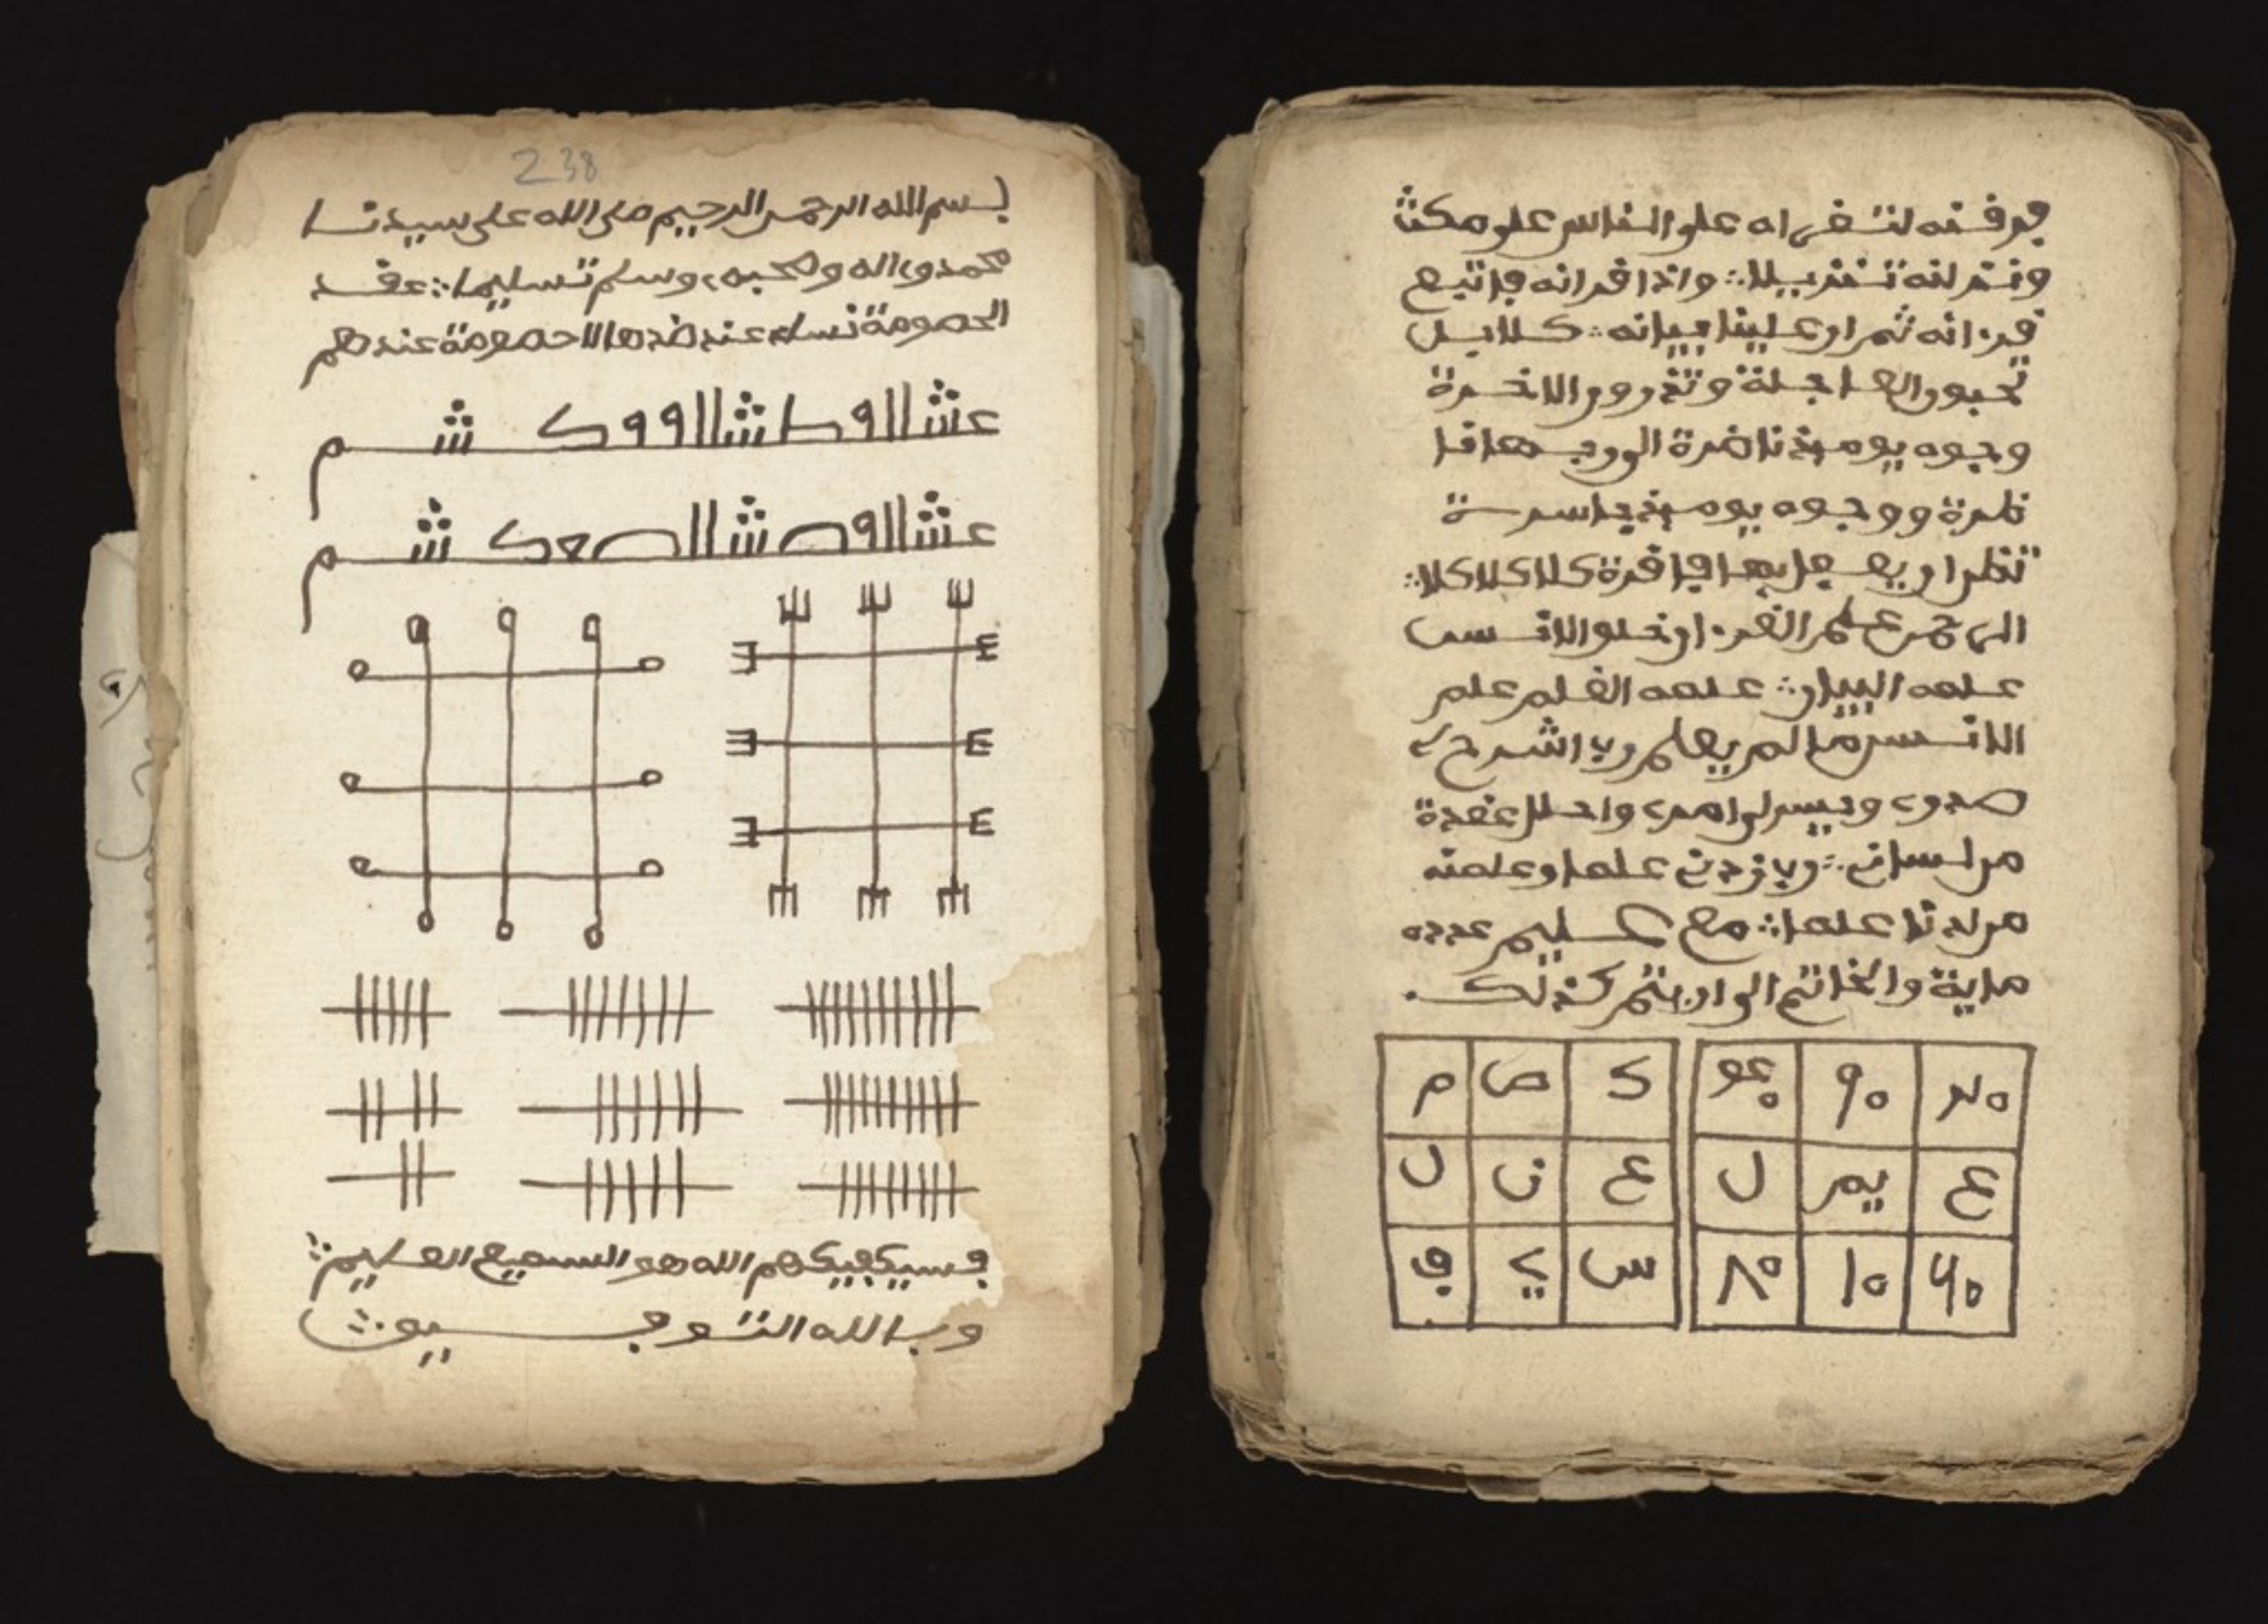 فرقنه لتقراه على الناس على مكث
ونزلنه تنزيلا ∴ واذا قرانه فاتبع
قرانه ثم ان علينا بيانه ∴ كلا بل
تحبون العاجلة وتذرون الاخرة
وجوه يوميذ ناضرة الى ربها نا
ظرة ووجوه يوميذ باسرة
تظن ان يفعل بها فاقرة كلا كلا كلا ∴
الرحمن علم القران خلق الانسن
علمه البيان ∴ علمه القلم علم
الانسن ما لم يعلم رب اشرح لي
صدري ويسر لي امري واحلل عقدة
من لساني ∴ رب زدني علما وعلمنه
من لدنا علما ∴ مع عليم عدده
ماية والخاتم كذلك
90 ك ص م
ع ل ع ن ل
60 10 80 س ي ف
238
بسم الله الرحمن الرحيم صلى الله على سيدنا
محمد وءاله وصحبه وسلم تسليما ∴ عقد
الخصومة عند لا خصومة عندهم
فسيكفيكهم الله هو السميع العليم ∴
وبالله التوفيق ∴